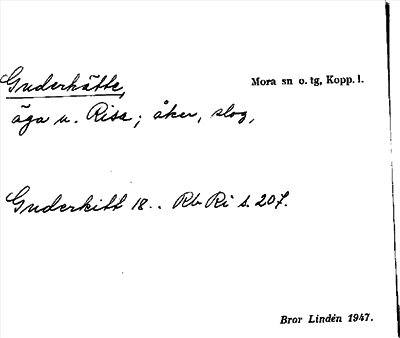 Guderhätte, Mora sn o. tg, Kopp. l.
äga u. Risa; åker, slog,
Guderkitt 18.. Rb Ri s. 207.
Bror Lindén 1947.